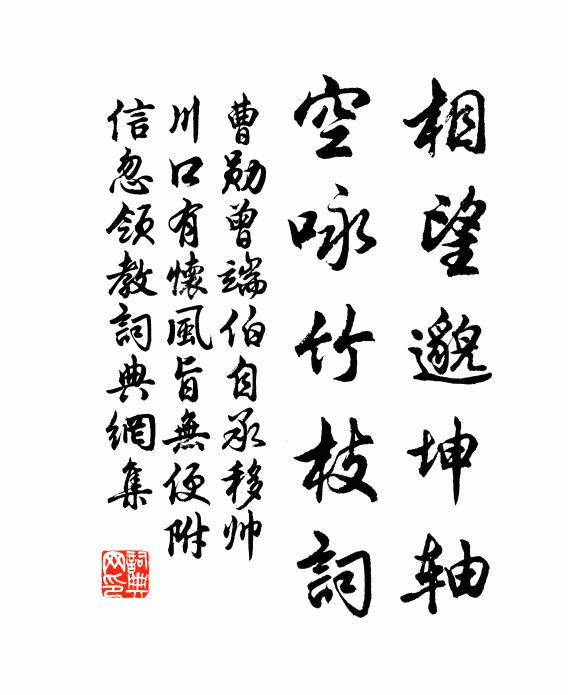 相望邈坤軸
空咏竹枝詞
曹勛曾端伯自承移帅
川口有懷風旨無便附
信忽領教詞典網集
詞典网印